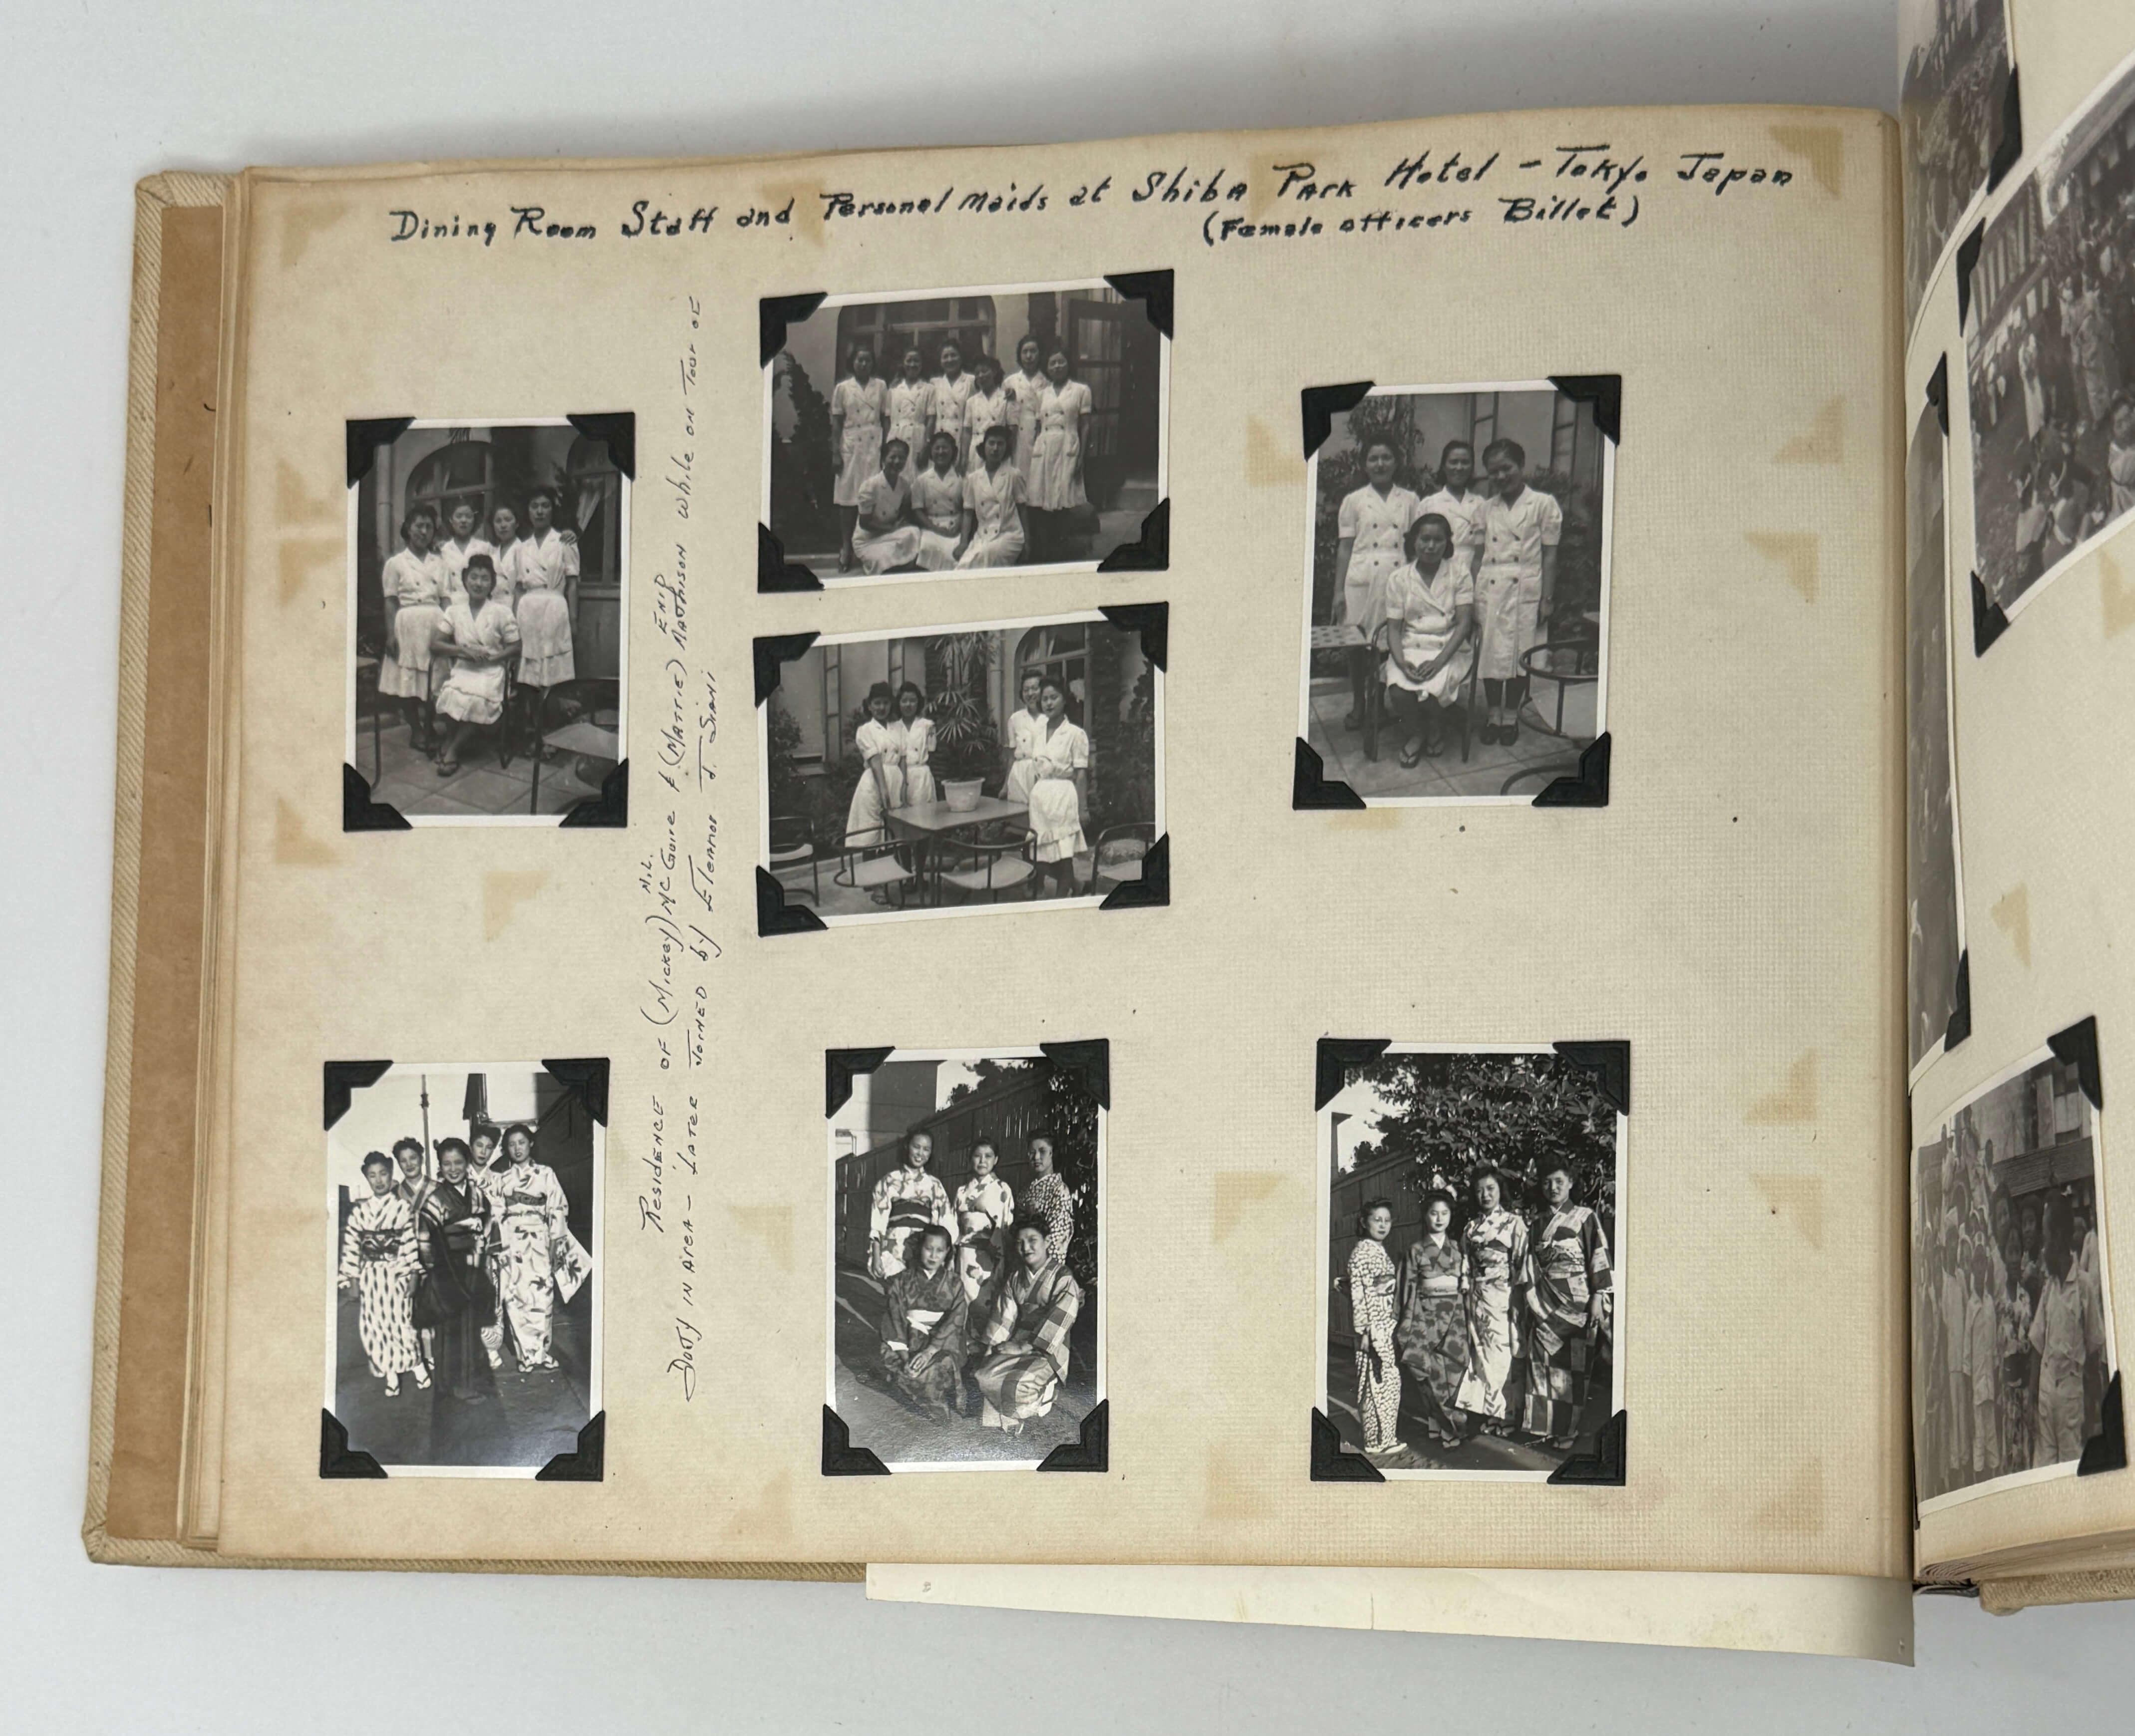 Dining Room Staff and Personel Maids at Shiba Park Hotel - Tokyo Japan
(Female officers Billet)
Residence of (Mickey) M.L. McGuire & (Mattie) Enid Mathison while on Tour of
Duty in Area - Later Joined by Eleanor T. Siani